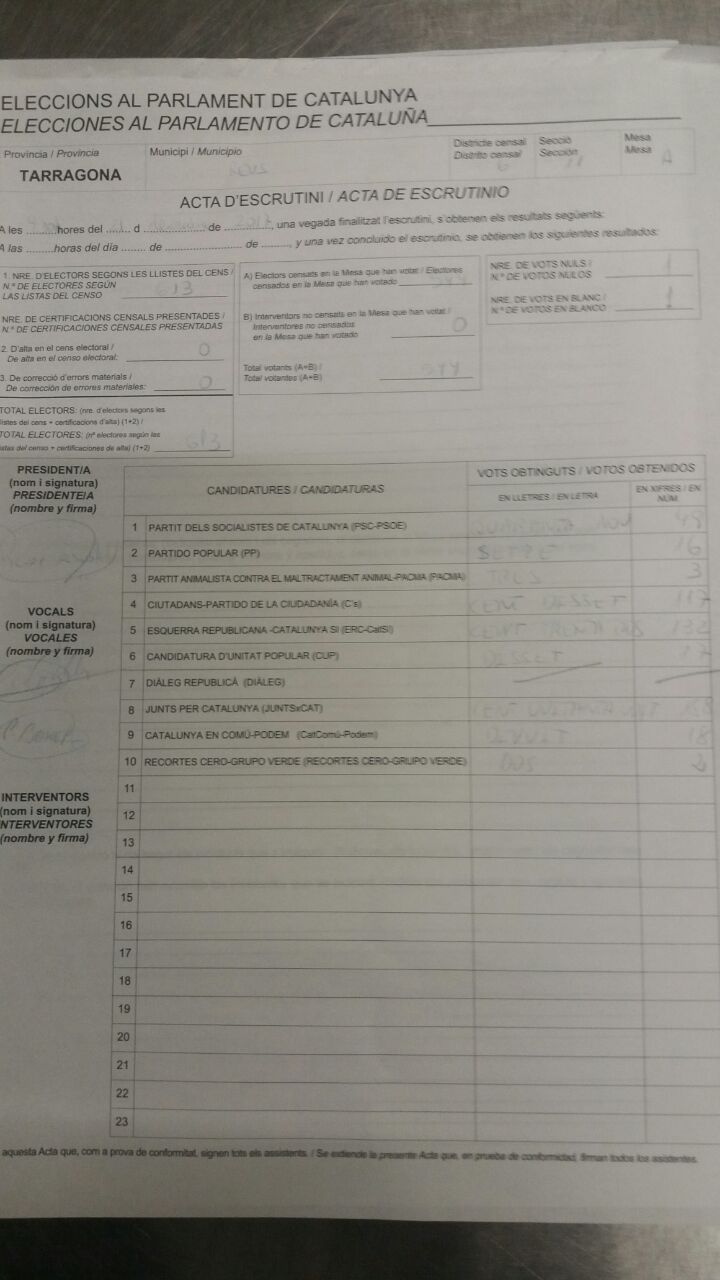 ELECCIONS AL PARLAMENT DE CATALUNYA
ELECCIONES AL PARLAMENTO DE CATALUÑA
Província / Provincia
TARRAGONA
Municipi / Municipio
REUS
Districte censal
Distrito censal
6
Secció
Sección
11
Mesa
Mesa
A
ACTA D'ESCRUTINI / ACTA DE ESCRUTINIO
A les ........ hores del ...... d ................ de ............, una vegada finalitzat l'escrutini, s'obtenen els resultats següents:
A las ........ horas del día ....... de ...................... de ........, y una vez concluido el escrutinio, se obtienen los siguientes resultados:
1. NRE. D'ELECTORS SEGONS LES LLISTES DEL CENS /
N.º DE ELECTORES SEGÚN
LAS LISTAS DEL CENSO 613
NRE. DE CERTIFICACIONS CENSALS PRESENTADES /
N.º DE CERTIFICACIONES CENSALES PRESENTADAS
2. D'alta en el cens electoral /
De alta en el censo electoral: 0
3. De correcció d'errors materials /
De corrección de errores materiales: 0
TOTAL ELECTORS: (nre. d'electors segons les
llistes del cens + certificacions d'alta) (1+2) /
TOTAL ELECTORES: (nº electores según las
listas del censo + certificaciones de alta) (1+2) 613
A) Electors censats en la Mesa que han votat / Electores
censados en la Mesa que han votado 544
B) Interventors no censats en la Mesa que han votat /
Interventores no censados
en la Mesa que han votado 0
Total votants (A+B) /
Total votantes (A+B) 544
NRE. DE VOTS NULS /
N.º DE VOTOS NULOS 1
NRE. DE VOTS EN BLANC /
N.º DE VOTOS EN BLANCO 1
PRESIDENT/A
(nom i signatura)
PRESIDENTE/A
(nombre y firma)
VOCALS
(nom i signatura)
VOCALES
(nombre y firma)
INTERVENTORS
(nom i signatura)
INTERVENTORES
(nombre y firma)
CANDIDATURES / CANDIDATURAS
VOTS OBTINGUTS / VOTOS OBTENIDOS
EN LLETRES / EN LETRA
EN XIFRES / EN NÚM.
1 PARTIT DELS SOCIALISTES DE CATALUNYA (PSC-PSOE) QUARANTA NOU 49
2 PARTIDO POPULAR (PP) SETZE 16
3 PARTIT ANIMALISTA CONTRA EL MALTRACTAMENT ANIMAL-PACMA (PACMA) TRES 3
4 CIUTADANS-PARTIDO DE LA CIUDADANÍA (C's) CENT DESSET 117
5 ESQUERRA REPUBLICANA -CATALUNYA SÍ (ERC-CatSí) CENT TRENTA 132
6 CANDIDATURA D'UNITAT POPULAR (CUP) DESSET 17
7 DIÀLEG REPUBLICÀ (DIÀLEG)
8 JUNTS PER CATALUNYA (JUNTSxCAT) CENT VUITANTA VUIT 188
9 CATALUNYA EN COMÚ-PODEM (CatComú-Podem) DIVUIT 18
10 RECORTES CERO-GRUPO VERDE (RECORTES CERO-GRUPO VERDE) DOS 2
11
12
13
14
15
16
17
18
19
20
21
22
23
aquesta Acta que, com a prova de conformitat, signen tots els assistents. / Se extiende la presente Acta que, en prueba de conformidad, firman todos los asistentes.